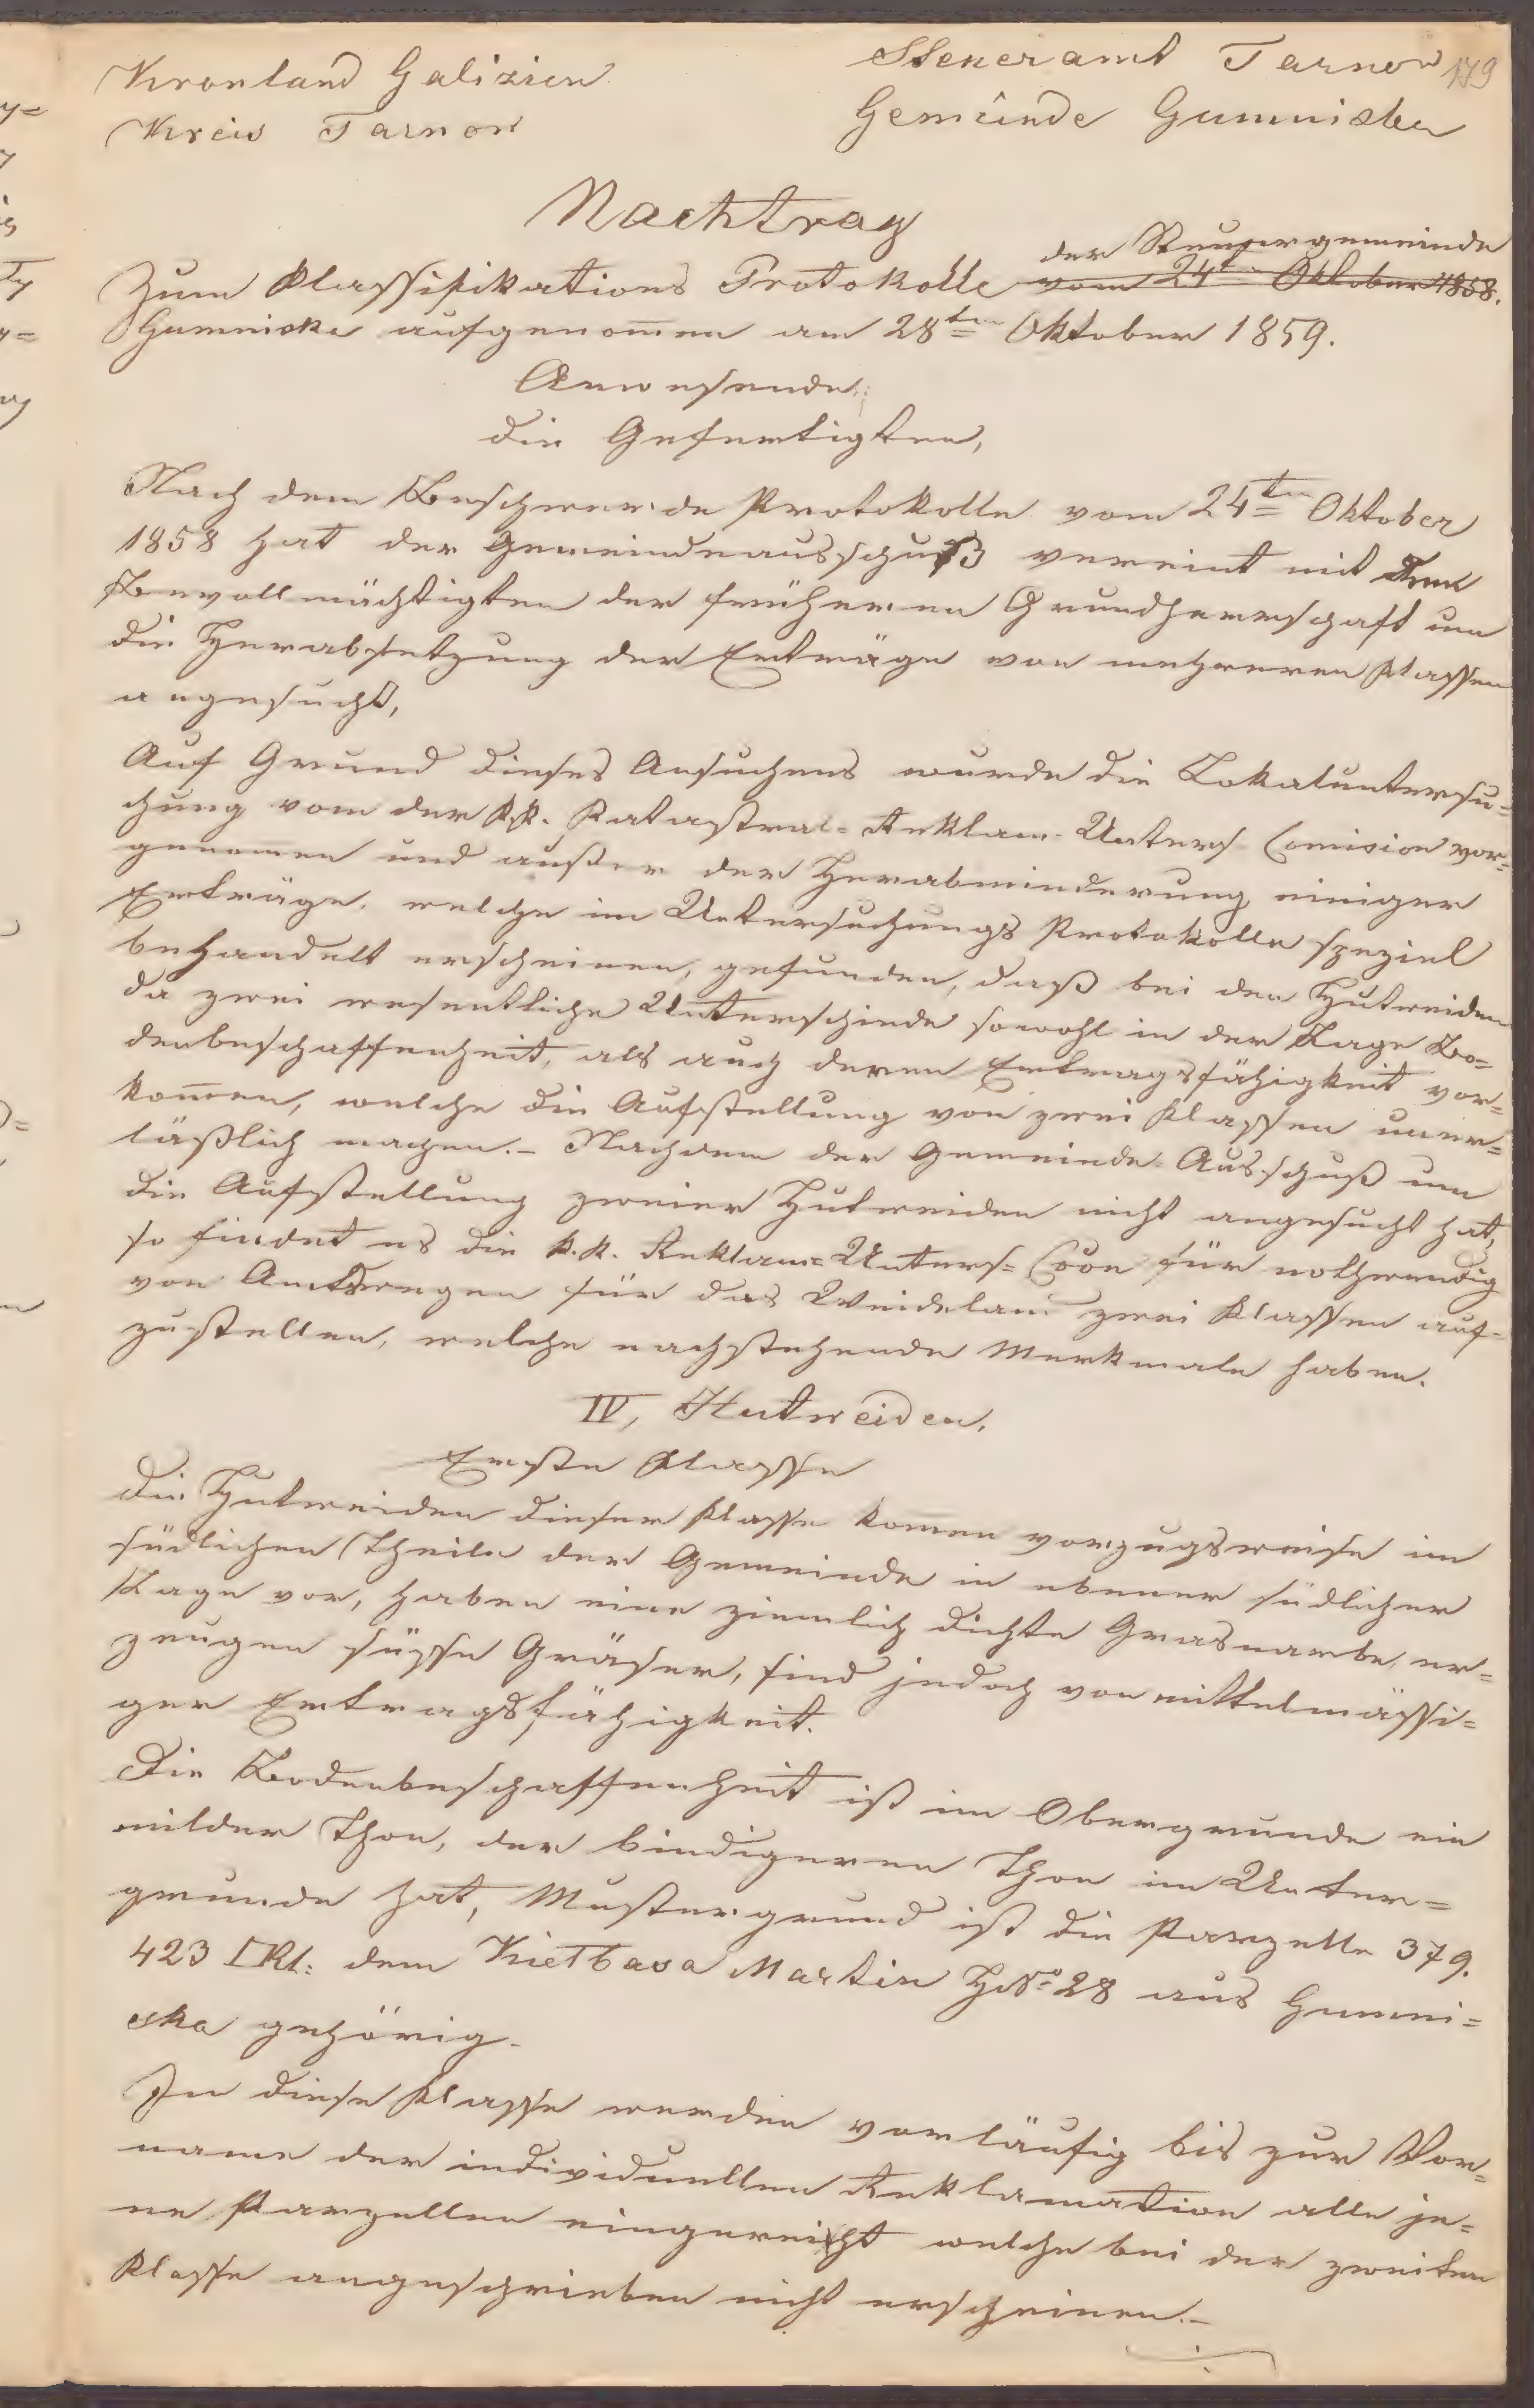 Kronland Galizien
Steueramt Tarnow 179
Kreis Tarnow
Gemeinde Gumniska
Nachtrag
der Steuergemeinde
Zum Klassifikations Protokolle vom 24ten Oktober 1858.
Gumniska aufgenom̄en am 28ten Oktober 1859.
Anwesende:
die Gefertigten,
Nach dem Beschwerde Protokolle vom 24ten Oktober
1858 hat der Gemeindeausschuß vereint mit dem
Bevollmächtigten der früheren Grundherrschaft um
die Herabsetzung der Erträge von mehreren Klassen
angesucht,
Auf Grund dieses Ansuchens wurde die Lokaluntersu=
chung vom der k.k. Katastral-Reklam-Unters Comision vor=
genomen und außer der Herabminderung einiger
Erträge, welche im Untersuchungs Protokolle speziel
behandelt erscheinen, gefunden, daß bei den Hutweiden
da zwei wesentliche Unterschiede sowohl in der Lage Bo=
denbeschaffenheit, als auch deren Ertragsfähigkeit vor=
kom̄en, welche die Aufstellung von zwei Klassen uner=
läßlich machen.- Nachdem der Gemeinde Ausschuß um
die Aufstellung zweier Hutweiden nicht angesucht hat,
so findet es die k.k. Reklam=Unters= Coon für nothwendig
von Amtswegen für das Weideland zwei Klassen auf-
zustellen, welche nachstehende Merkmale haben.
IV, Hutweiden.
Erste Klasse
Die Hutweiden dieser Klasse komen vorzugsweise im
südlichen Theile der Gemeinde in ebener südlicher
Lage vor, haben eine ziemlich dichte Grasnarbe, er=
zeugen süsse Gräser, sind jedoch von mittelmässi=
ger Ertragsfähigkeit.
Die Bodenbeschaffenheit ist im Obergrunde ein
milder Thon, der bindigeren Thon im Unter=
grunde hat, Mustergrund ist die Parzelle 379.
423 □Kl: dem Kiełbasa Martin HNo 28 aus Gumni=
ska gehörig.
In diese Klasse werden vorläufig bis zur Vor=
name der individuellen Reklamation alle je=
ne Parzellen eingereicht welche bei der zweiten
Klasse angeschrieben nicht erscheinen.-